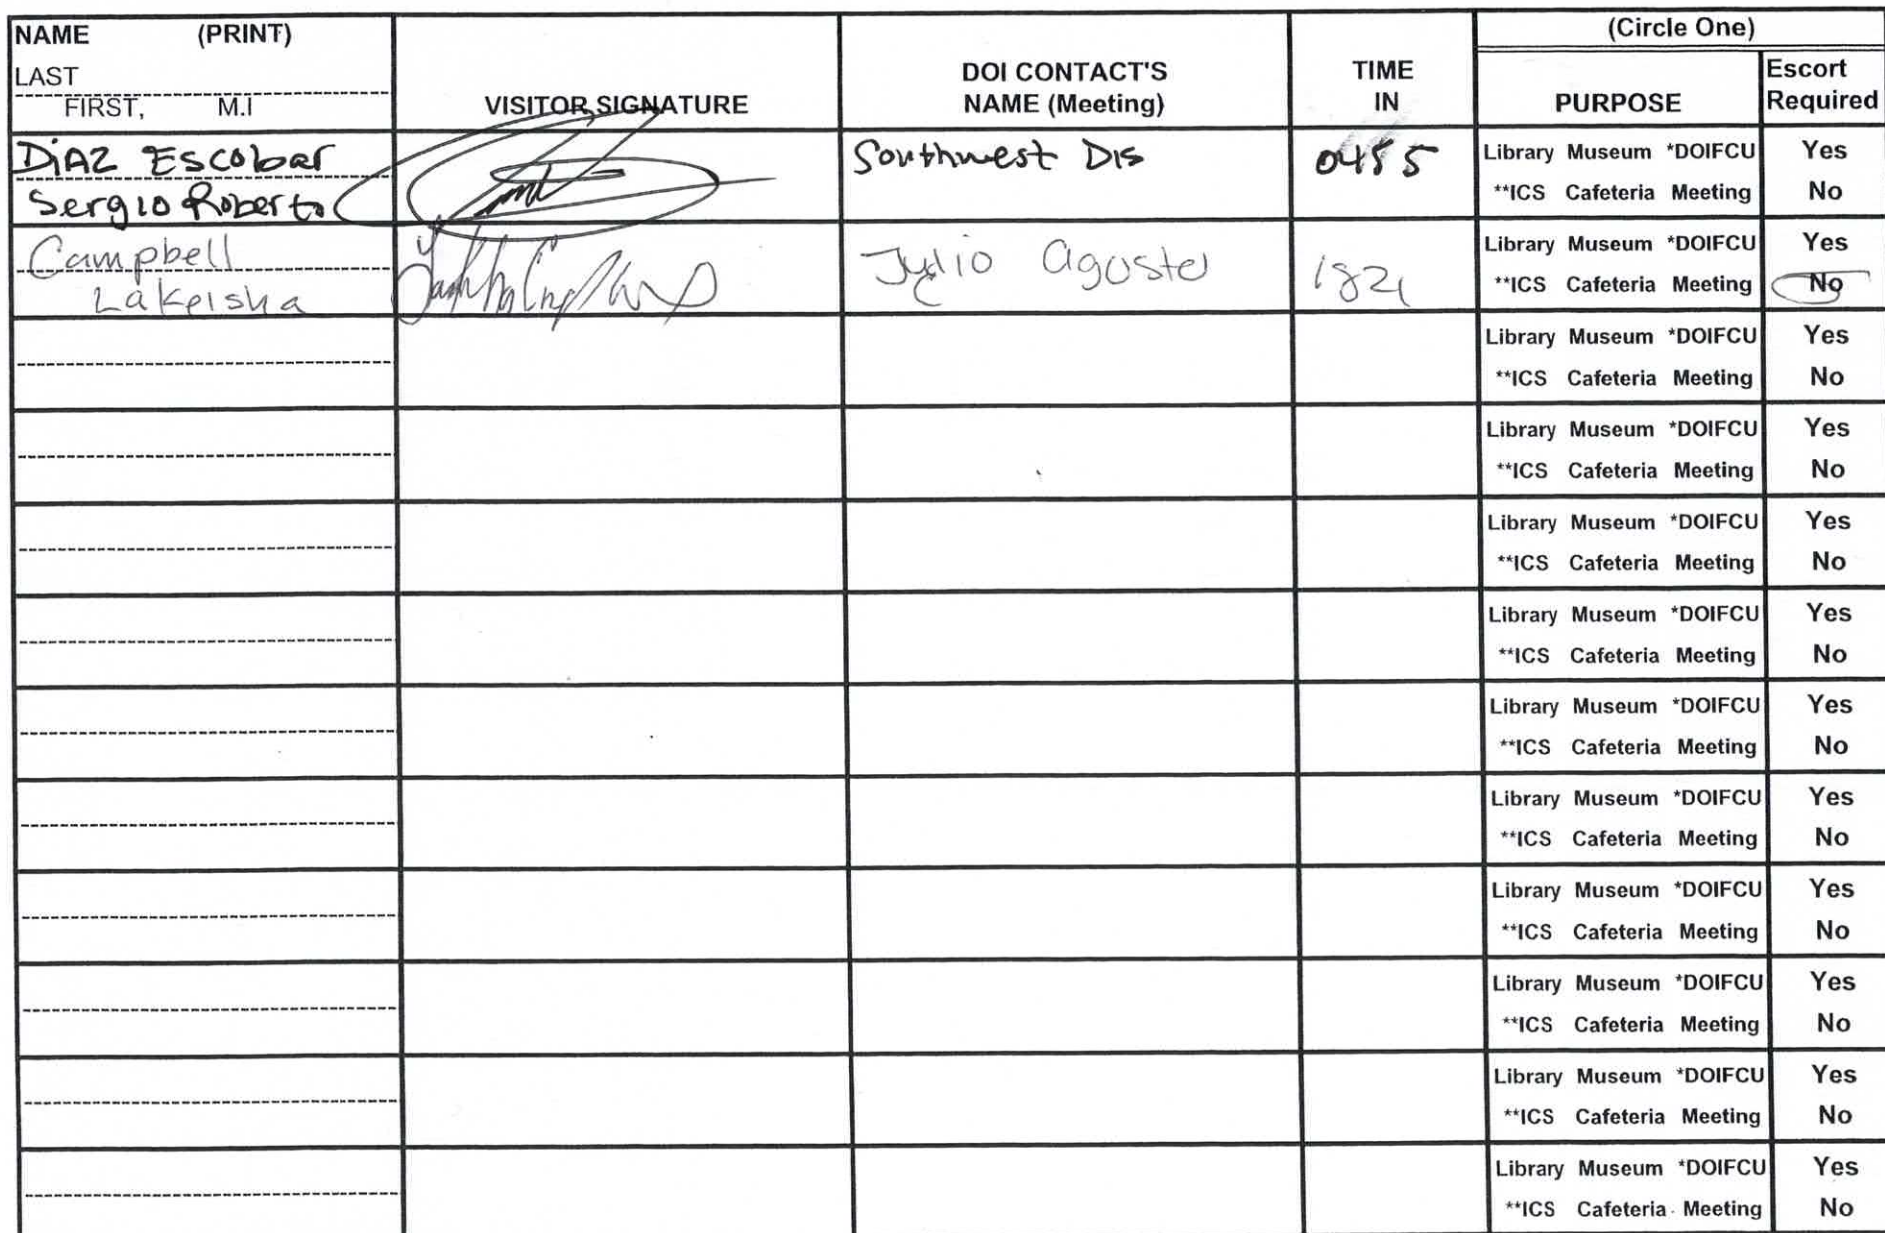 NAME (PRINT)
LAST
FIRST, M.I
VISITOR SIGNATURE
DOI CONTACT'S
NAME (Meeting)
TIME
IN
(Circle One)
PURPOSE
Escort
Required
DiAZ Escobar
Sergio Roberto
Southwest Dis
0455
Library Museum *DOIFCU Yes
**ICS Cafeteria Meeting No
Campbell
Lakeisha
Julio agosto
1821
Library Museum *DOIFCU Yes
**ICS Cafeteria Meeting No
Library Museum *DOIFCU Yes
**ICS Cafeteria Meeting No
Library Museum *DOIFCU Yes
**ICS Cafeteria Meeting No
Library Museum *DOIFCU Yes
**ICS Cafeteria Meeting No
Library Museum *DOIFCU Yes
**ICS Cafeteria Meeting No
Library Museum *DOIFCU Yes
**ICS Cafeteria Meeting No
Library Museum *DOIFCU Yes
**ICS Cafeteria Meeting No
Library Museum *DOIFCU Yes
**ICS Cafeteria Meeting No
Library Museum *DOIFCU Yes
**ICS Cafeteria Meeting No
Library Museum *DOIFCU Yes
**ICS Cafeteria Meeting No
Library Museum *DOIFCU Yes
**ICS Cafeteria Meeting No